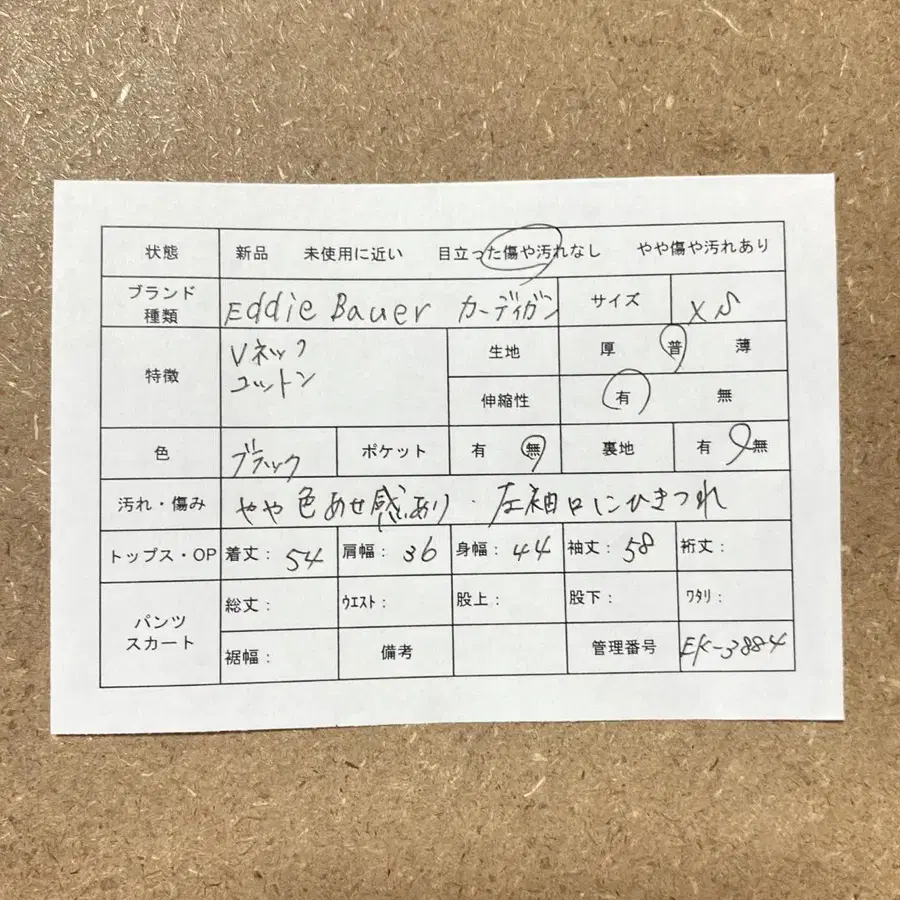 状態 新品 未使用に近い 目立った傷や汚れなし やや傷や汚れあり
ブランド 種類 Eddie Bauer カーディガン サイズ XS
特徴 Vネック
コットン
生地 厚 普 薄
伸縮性 有 無
色 ブラック ポケット 有 無 裏地 有 無
汚れ・傷み やや色あせ感あり・左袖口にひきつれ
トップス・OP 着丈: 54 肩幅: 36 身幅: 44 袖丈: 58 裄丈:
パンツ スカート 総丈: ウエスト: 股上: 股下: ワタリ:
裾幅: 備考 管理番号 EK-3884